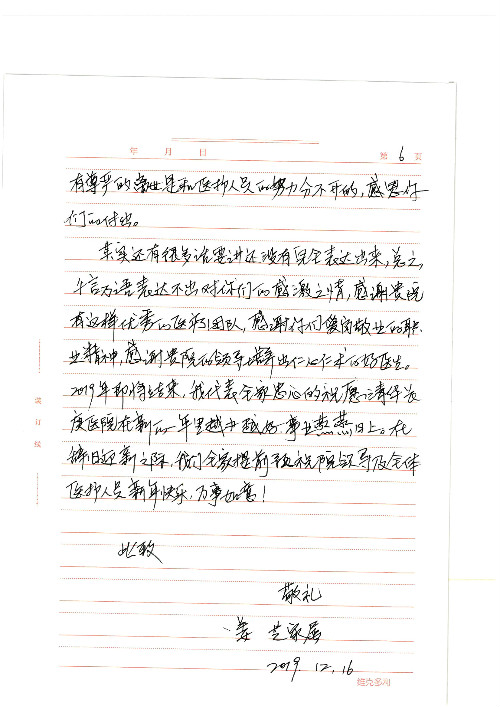 年 月 日
第 6 页
有尊严的离世是和医护人员的努力分不开的，感恩你
们的付出。
其实还有很多话要讲还没有完全表达出来，总之，
千言万语表达不出对你们的感激之情，感谢贵院
有这样优秀的医疗团队，感谢你们爱岗敬业的职
业精神，感谢贵院的领导培养出仁心仁术的好医生。
2019年即将结束，我代表全家忠心的祝愿清华长
庚医院在新的一年里越办越好 事业燕燕日上。在
辞旧迎新之际，我们全家提前预祝院领导及全体
医护人员新年快乐，万事如意！
此致
敬礼
姜 芝家属
2019.12.16
装
订
线